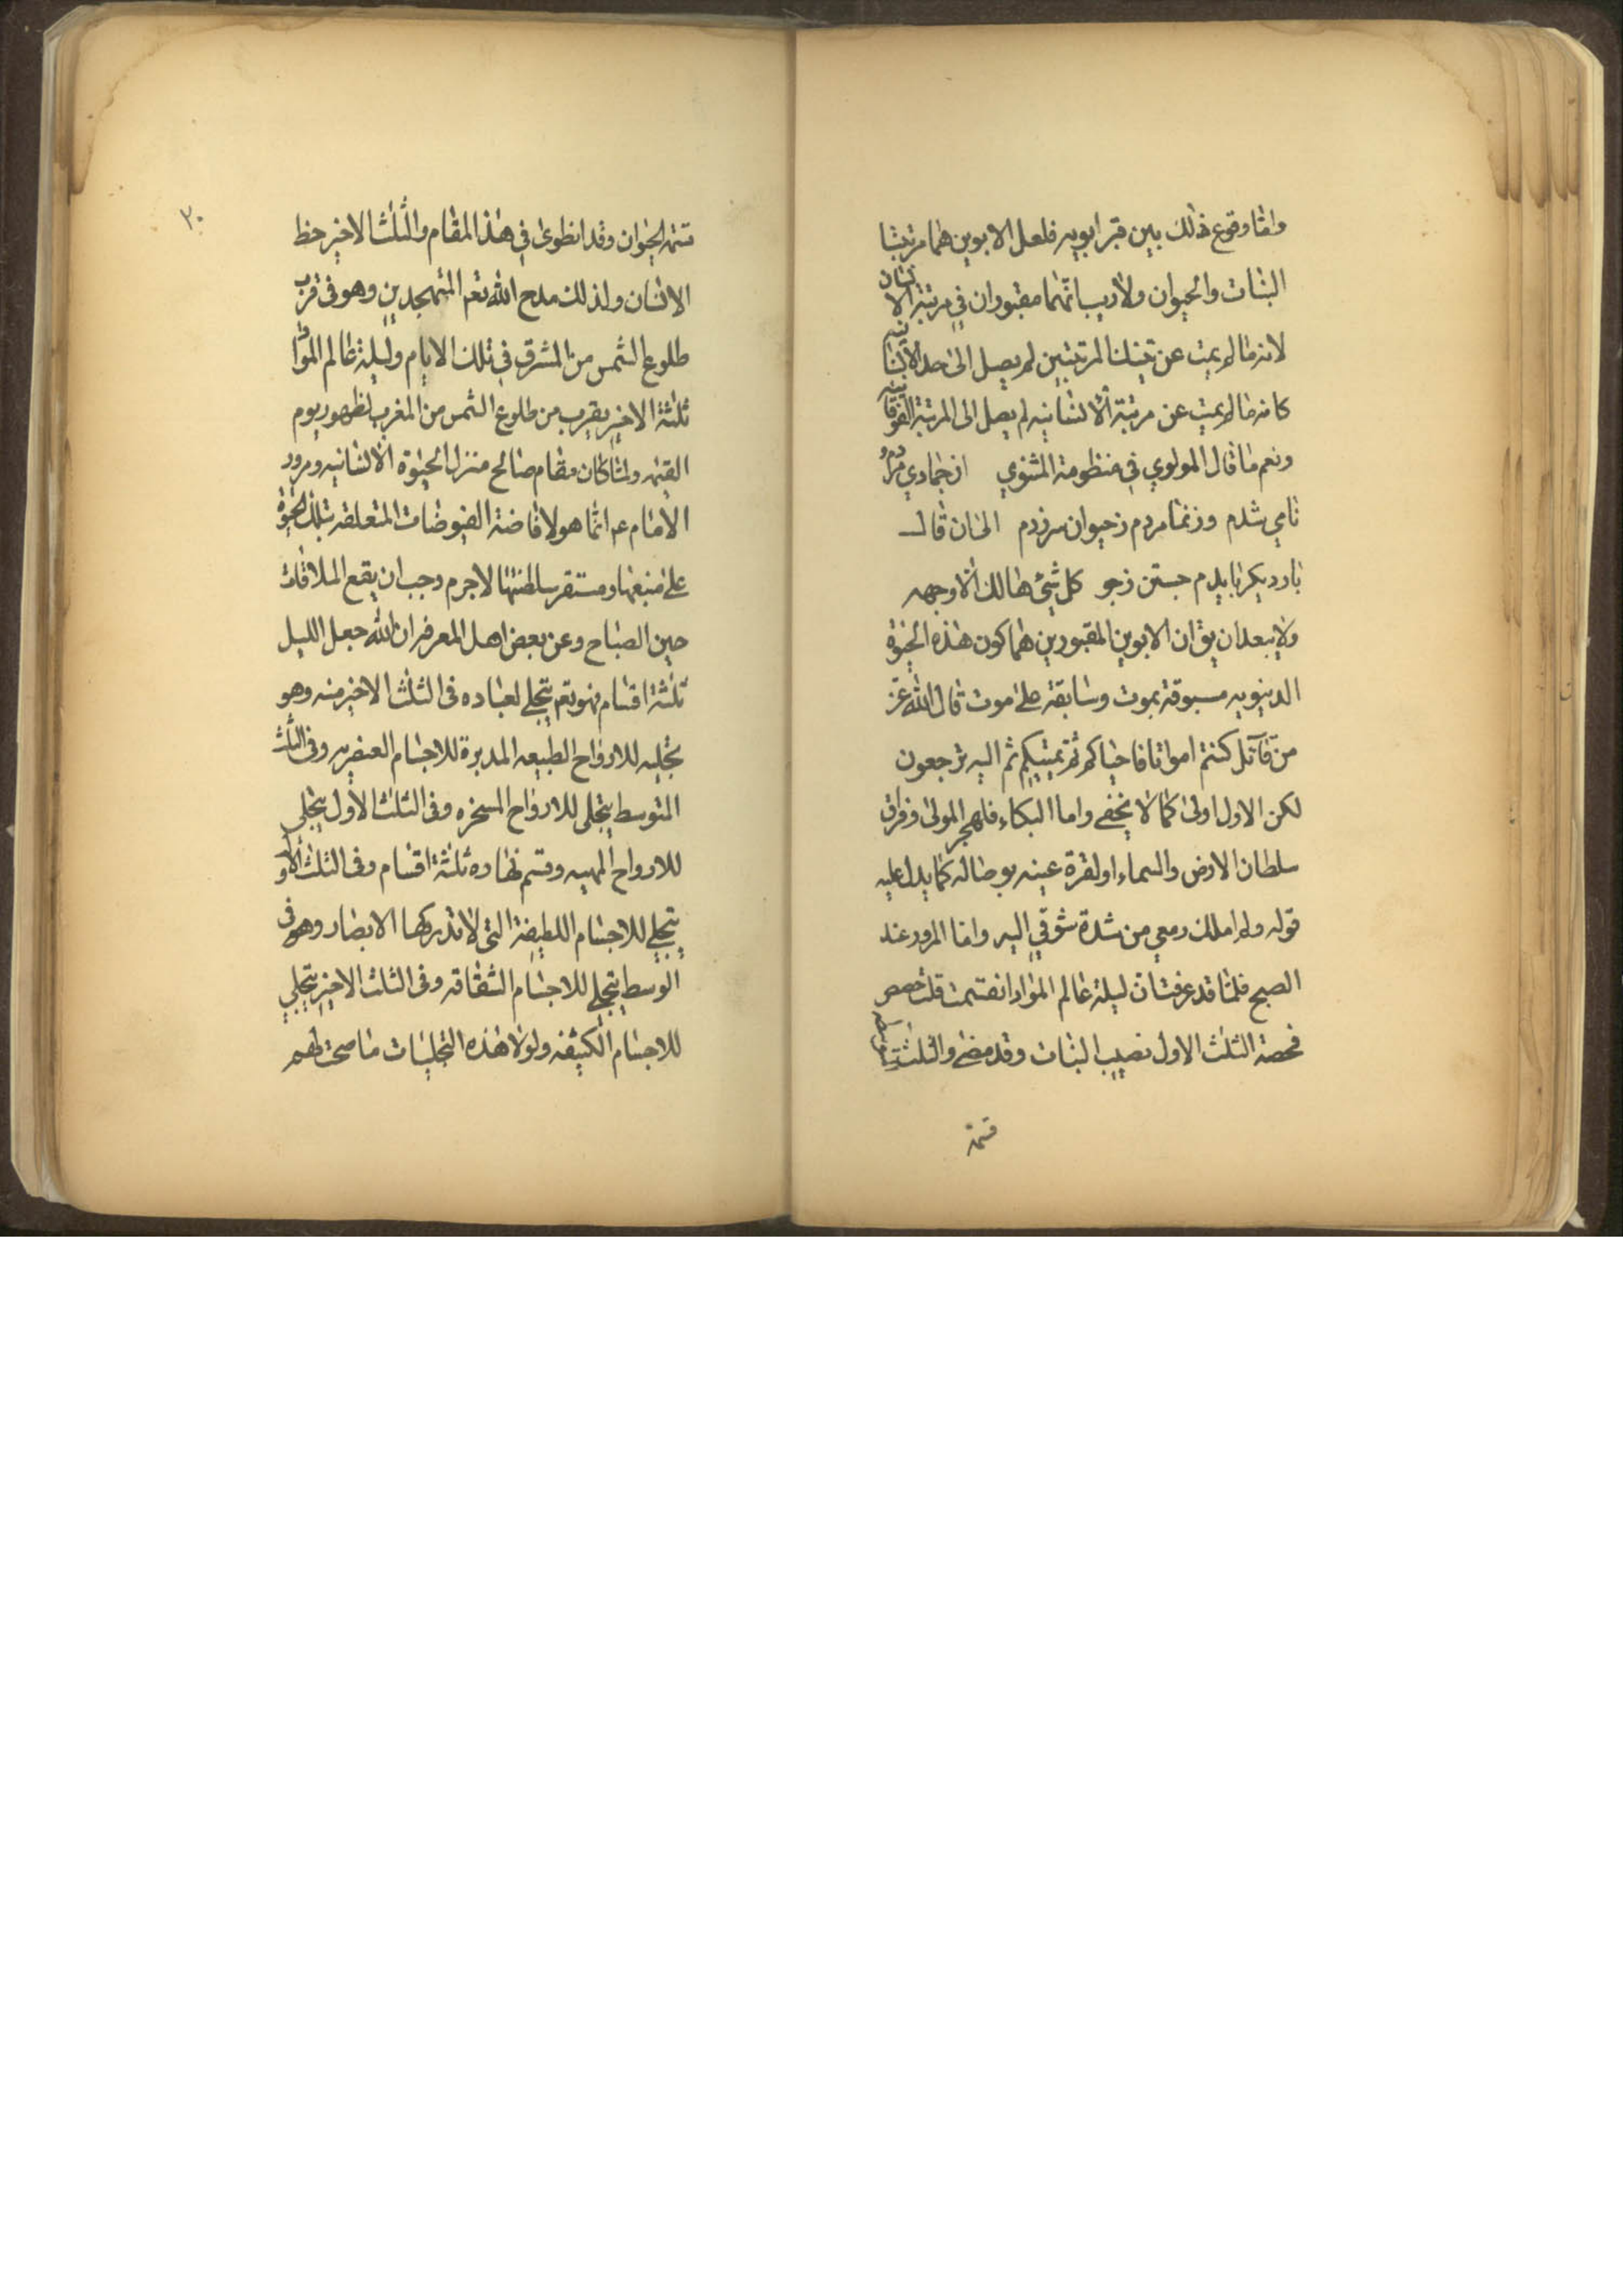 واما وقوع ذلك بين قبر ابويه فلعل الابوين هما مرتبتا
النبات والحيوان ولاريب انهما مقبوران في مرتبة الانسان
لانه مالم يمت عن تينك المرتبتين لم يصل الى حد الانسانيه
كانه مالم يمت عن مرتبة الانسانيه لم يصل الى المرتبة الفوقانيه
ونعم ما قال المولوي في منظومة المثنوي از جمادي مردم و
نامي شدم وز نما مردم ز حيوان سر زدم الى ان قال
بار ديكر بايدم جستن ز جو كل شئ هالك الا وجهه
ولا يبعد ان يق ان الابوين المقبورين هما كون هذه الحيوة
الدنيويه مسبوقة بموت وسابقة على موت قال الله عز
من قائل كنتم امواتا فاحياكم ثم يميتكم ثم اليه ترجعون
لكن الاول اولى كما لا يخفى واما البكاء فلهجر المولى وفراق
سلطان الارض والسماء او لقرة عينه بوصاله كما يدل عليه
قوله ولم املك دمعي من شدة شوقي اليه واما المرور عند
الصبح فلما قد عرفت ان ليلة عالم المواد انقسمت ثلث حصص
فحصة الثلث الاول نصيب النبات وقد مضى والثلث
قسمة
٣٠
قسمة الحيوان وقد انطوى في هذا المقام والثلث الاخير حظ
الانسان ولذلك مدح الله تعم المتهجدين وهو في قرب
طلوع الشمس من المشرق في تلك الايام وليلة عالم المواد
ثلثة الاخير يقرب من طلوع الشمس من المغرب لظهور يوم
القيمه ولما كان مقام صالح منزل الحيوة الانسانيه ومرور
الامام عم انما هو لافاضة الفيوضات المتعلقه بتلك الحيوة
على منبعها ومستقر سلطنتها لاجرم وجب ان يقع الملاقات
حين الصباح وعن بعض اهل المعرفه ان الله جعل الليل
ثلثة اقسام فهو تعم يتجلى لعباده في الثلث الاخير منه وهو
تجليه للارواح الطبيعه المدبرة للاجسام العنصريه وفي الثلث
المتوسط يتجلى للارواح المسخره وفي الثلث الاول يتجلى
للارواح المهيمه وقسم نهاره ثلثة اقسام وفي الثلث الاول
يتجلى للاجسام اللطيفة التي لا تدركها الابصار وهو في
الوسط يتجلى للاجسام الشفافه وفي الثلث الاخير يتجلى
للاجسام الكثيفه ولولا هذه التجليات ما صحت لهم